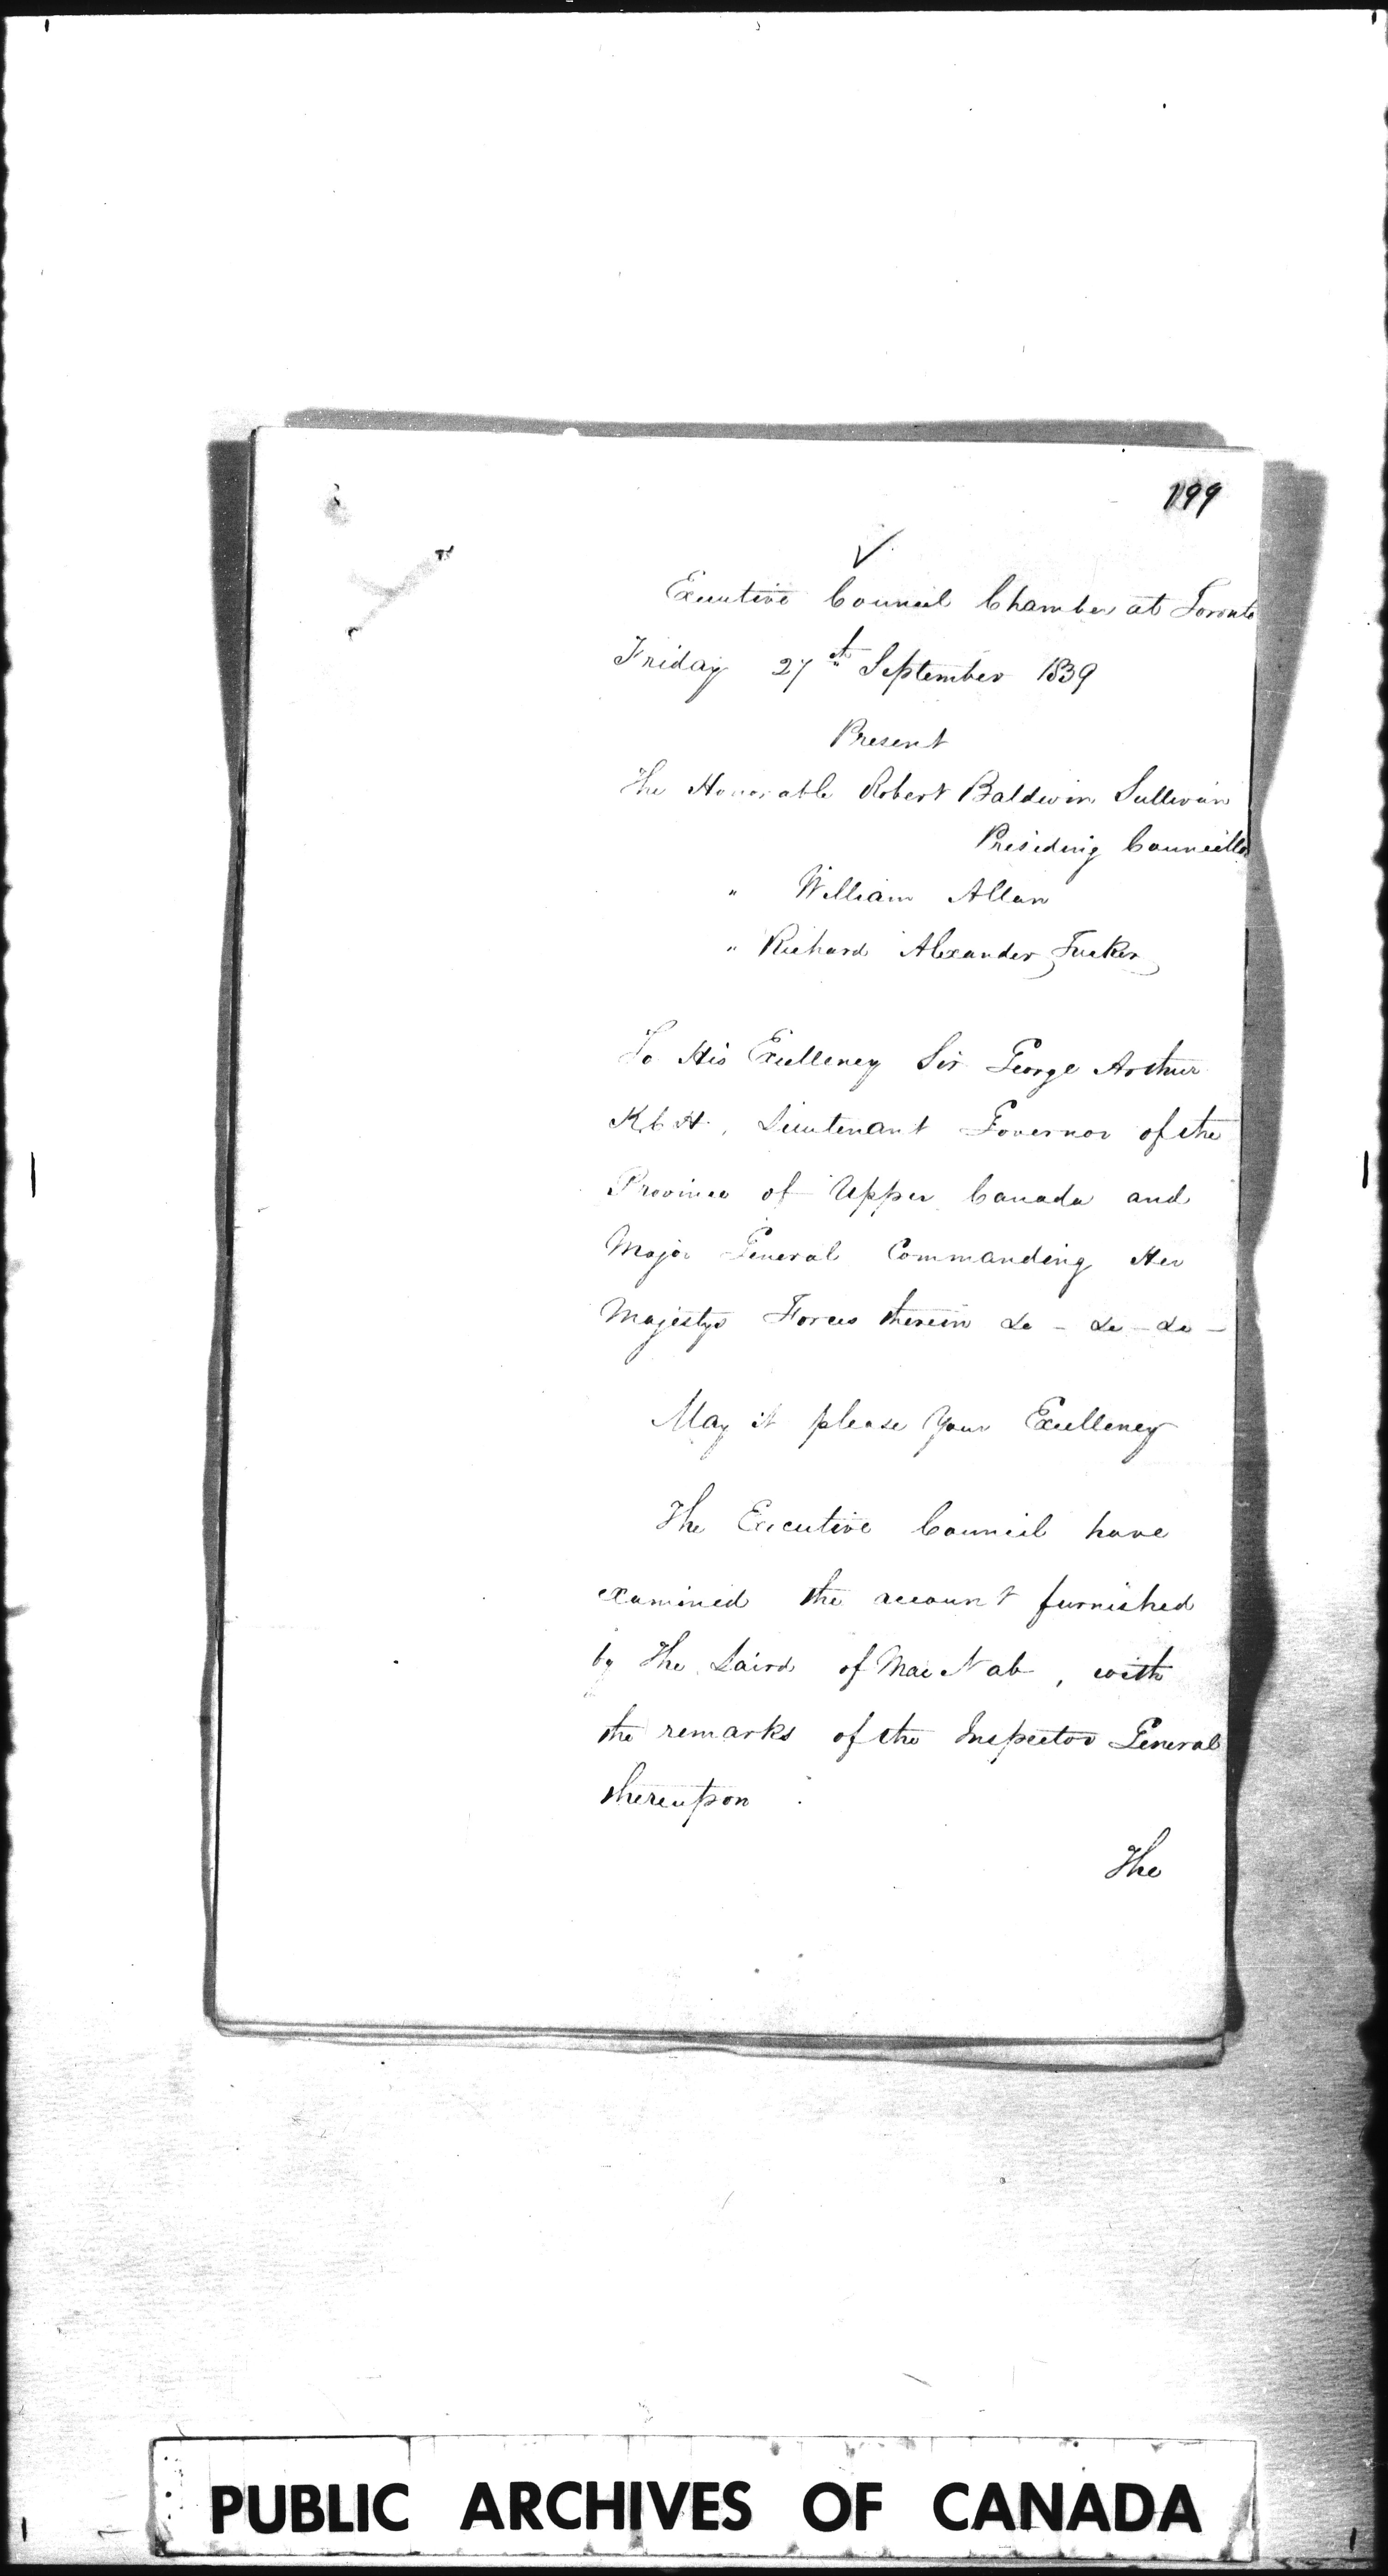 199
Executive Council Chamber at Toronto
Friday 27th September 1839
Present
The Honorable Robert Baldwin Sullivan
Presiding Councillor
" William Allan
" Richard Alexander Tucker
To His Excellency Sir George Arthur
K.C.H., Lieutenant Governor of the
Province of Upper Canada and
Major General Commanding Her
Majestys Forces therein &c - &c - &c -
May it please Your Excellency
The Executive Council have
examined the account furnished
by The Laird of MacNab, with
the remarks of the Inspector General
thereupon .
The
PUBLIC ARCHIVES OF CANADA